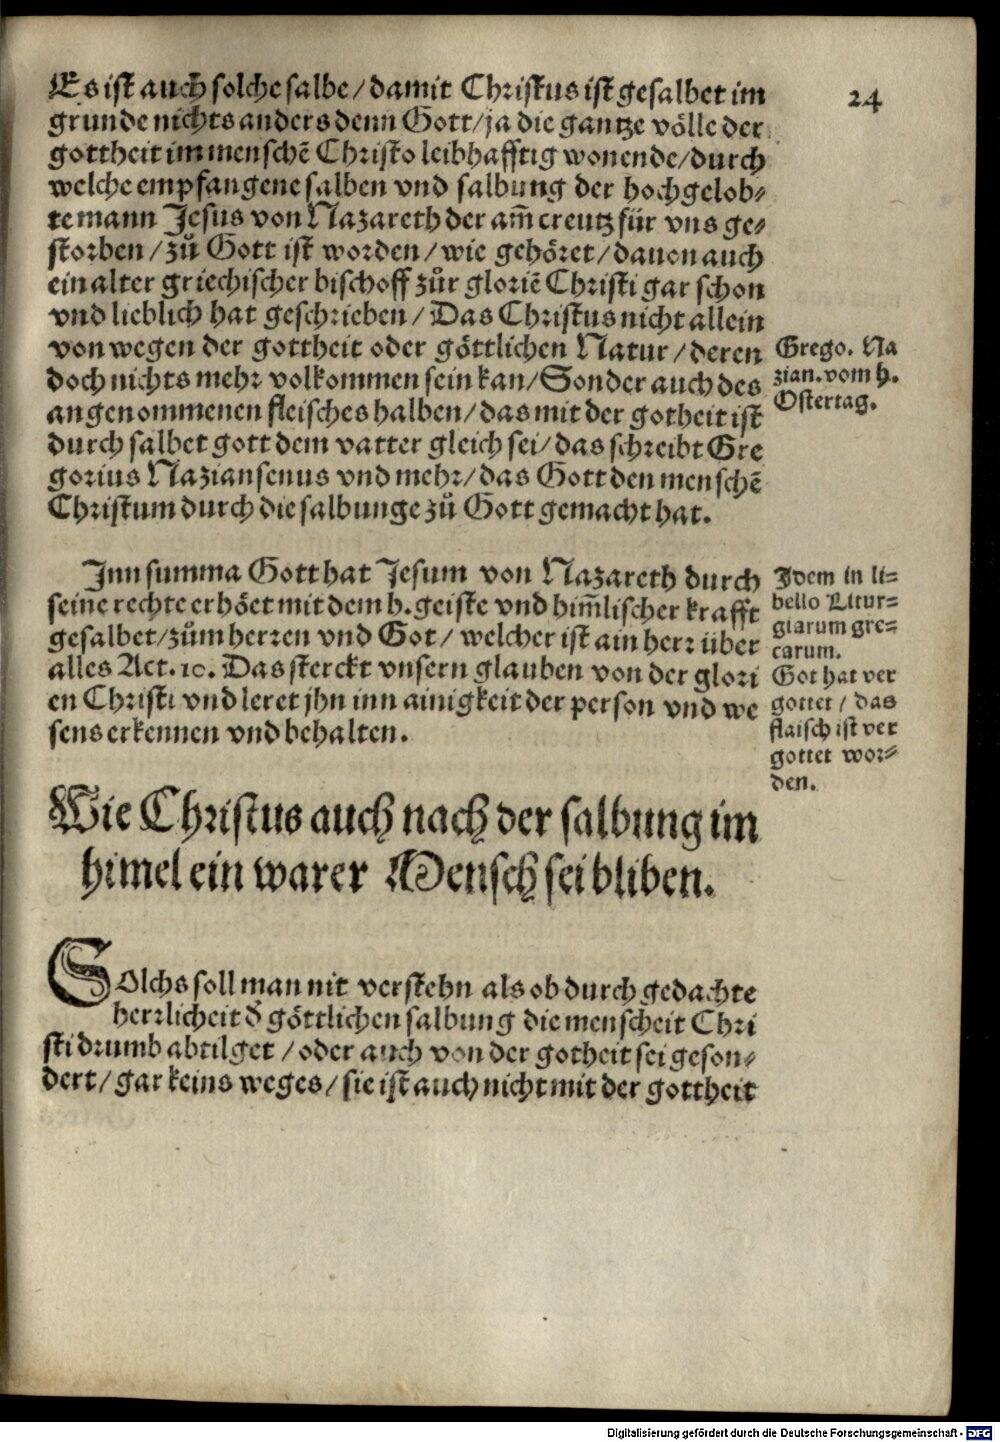 24
Es ist auch solche salbe / damit Christus ist gesalbet im
grunde nichts anders denn Gott / ja die gantze völle der
gottheit im menschē Christo leibhafftig wonende / durch
welche empfangene salben vnd salbung der hochgelob⸗
te mann Jesus von Nazareth der am̄ creutz für vns ge⸗
storben / zů Gott ist worden / wie gehöret / dauon auch
ein alter griechischer bischoff zůr gloriē Christi gar schon
vnd lieblich hat geschrieben / Das Christus nicht allein
von wegen der gottheit oder göttlichen Natur / deren
doch nichts mehr volkommen sein kan / Sonder auch des
angenommenen fleisches halben / das mit der gotheit ist
durch salbet gott dem vatter gleich sei / das schreibt Gre
gorius Naziansenus vnd mehr / das Gott den menschē
Christum durch die salbunge zů Gott gemacht hat.
Grego. Na
zian. vom h.
Ostertag.
Inn summa Gott hat Jesum von Nazareth durch
seine rechte erhöet mit dem h. geiste vnd him̄lischer krafft
gesalbet / zům herren vnd Got / welcher ist ain herr über
alles Act. 10. Das sterckt vnsern glauben von der glori
en Christi vnd leret jhn inn ainigkeit der person vnd we
sens erkennen vnd behalten.
Idem in li⸗
bello Litur⸗
giarum gre⸗
carum.
Got hat ver
gottet / das
flaisch ist ver
gottet wor⸗
den.
Wie Christus auch nach der salbung im
himel ein warer Mensch sei bliben.
SOlchs soll man nit verstehn als ob durch gedachte
herrlicheit d̛ göttlichen salbung die menscheit Chri
sti drumb abtilget / oder auch von der gotheit sei geson⸗
dert / gar keins weges / sie ist auch nicht mit der gottheit
Digitalisierung gefördert durch die Deutsche Forschungsgemeinschaft - DFG